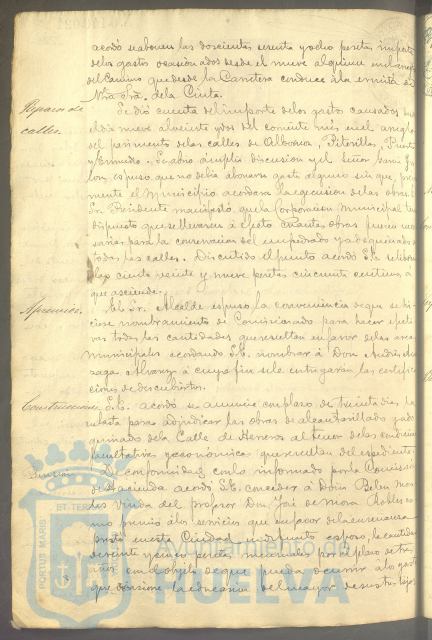 acordó se abonen las doscientas sesenta y ocho pesetas importe
delos gastos ocasionados desde el nueve al quince en el arreglo
del Camino que desde la Carretera conduce á la ermita de
Ntra. Sra. dela Cinta.
Reparo de
calles.
Se dió cuenta del importe delos gastos causados
el dia nueve al veinte y dos del corriente mes en el arreglo
del pavimento delas calles de Puerto
y Enmedio. Se abrió ámplia discusion y el Señor
espuso que no debia abonarse gasto alguno sin que
mente el Municipio acordara la egecucion delas obras. El
Sr. Presidente manifestó que la Corporacion Municipal tenia
dispuesto que se llevaran á efecto cuantas obras fueran nece-
sarias para la conservacion del empedrado y adoquinado de
todas las calles. Discutido el punto acordó S.E. se libren
las ciento veinte y nueve pesetas cincuenta centimos á
que asciende.
Apremios.
El Sr. Alcalde espuso la conveniencia de que se hi-
ciese nombramiento de Comisionado para hacer efecti-
vas todas las cantidades que resultan en favor delas arcas
municipales acordando S.E. nombrar á Don Andrés
Alvarez á cuyo fin se le entregaran las certifica-
ciones de descubiertos.
Construcciones
S.E. acordó se anuncie en plazo de treinta dias la
subasta para adjudicar las obras de alcantarillado y ado-
quinado dela Calle de Herreros al tenor delas condiciones
facultativas y economicas que resultan del espediente.
De conformidad con lo informado por la Comision
de Hacienda acordó S.E. conceder á Doña Belen
viuda del profesor Don José de Mora Robles co-
mo premio á los servicios que en favor dela enseñanza
prestó en esta Ciudad su difunto esposo, la cantidad
de veinte y cinco pesetas mensuales por el plazo de tres
años con el objeto de que pueda ocurrir á los gastos
que ocasione la educacion del mayor de sus tres hijos
PORTUS MARIS ET TERRAE
Ayuntamiento de
HUELVA